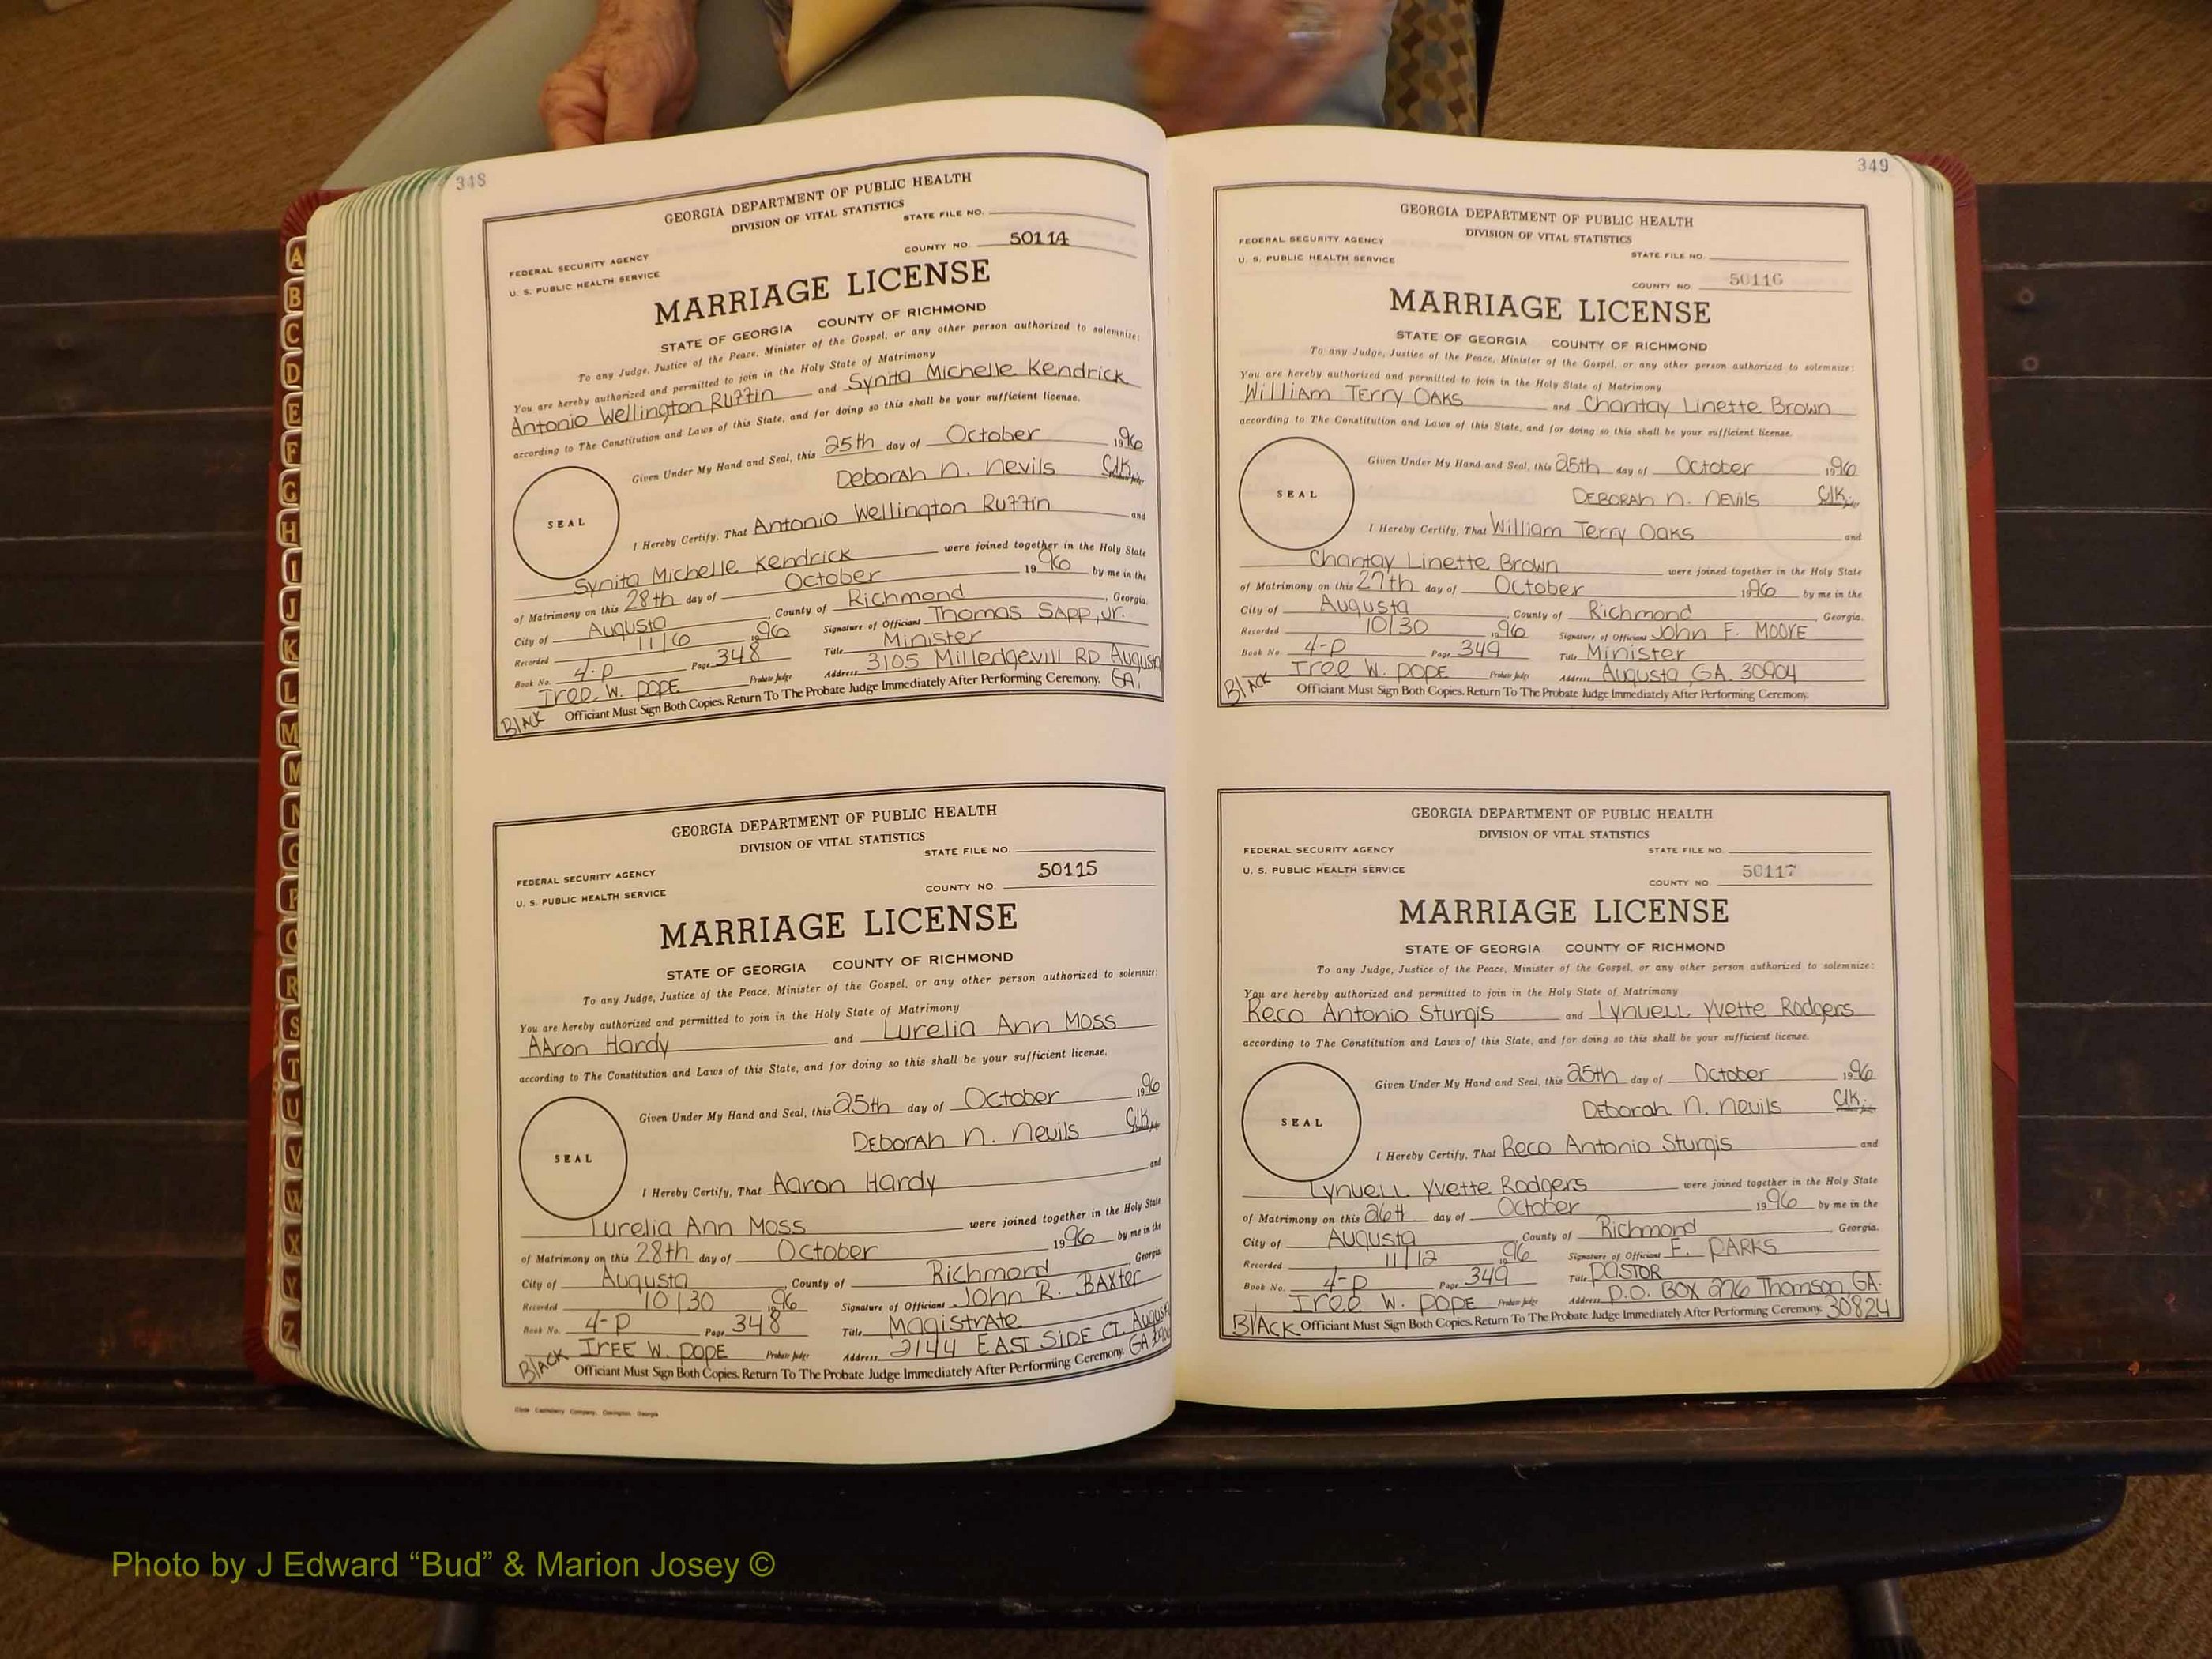 348
GEORGIA DEPARTMENT OF PUBLIC HEALTH
DIVISION OF VITAL STATISTICS
STATE FILE NO.
FEDERAL SECURITY AGENCY
COUNTY NO. 50114
U. S. PUBLIC HEALTH SERVICE
MARRIAGE LICENSE
STATE OF GEORGIA COUNTY OF RICHMOND
To any Judge, Justice of the Peace, Minister of the Gospel, or any other person authorized to solemnize:
You are hereby authorized and permitted to join in the Holy State of Matrimony
Antonio Wellington Ruffin and Synita Michelle Kendrick
according to The Constitution and Laws of this State, and for doing so this shall be your sufficient license.
Given Under My Hand and Seal, this 25th day of October 1996
Deborah N. Nevils Clk.
SEAL
I Hereby Certify, That Antonio Wellington Ruffin and
Synita Michelle Kendrick were joined together in the Holy State
of Matrimony on this 28th day of October 1996 by me in the
City of Augusta, County of Richmond, Georgia.
Recorded 11/6 1996 Signature of Officiant Thomas Sapp, Jr.
Book No. 4-P Page 348 Title Minister
Iree W. Pope Probate Judge Address 3105 Milledgevill RD Augusta GA.
BLACK Officiant Must Sign Both Copies. Return To The Probate Judge Immediately After Performing Ceremony.
GEORGIA DEPARTMENT OF PUBLIC HEALTH
DIVISION OF VITAL STATISTICS
STATE FILE NO.
FEDERAL SECURITY AGENCY
COUNTY NO. 50115
U. S. PUBLIC HEALTH SERVICE
MARRIAGE LICENSE
STATE OF GEORGIA COUNTY OF RICHMOND
To any Judge, Justice of the Peace, Minister of the Gospel, or any other person authorized to solemnize:
You are hereby authorized and permitted to join in the Holy State of Matrimony
AAron Hardy and Lurelia Ann Moss
according to The Constitution and Laws of this State, and for doing so this shall be your sufficient license.
Given Under My Hand and Seal, this 25th day of October 1996
Deborah N. Nevils Clk.
SEAL
I Hereby Certify, That Aaron Hardy and
Lurelia Ann Moss were joined together in the Holy State
of Matrimony on this 28th day of October 1996 by me in the
City of Augusta, County of Richmond, Georgia.
Recorded 10/30 1996 Signature of Officiant John R. Baxter
Book No. 4-P Page 348 Title Magistrate
Iree W. Pope Probate Judge Address 2144 East Side Ct. Augusta GA
BLACK Officiant Must Sign Both Copies. Return To The Probate Judge Immediately After Performing Ceremony.
349
GEORGIA DEPARTMENT OF PUBLIC HEALTH
DIVISION OF VITAL STATISTICS
FEDERAL SECURITY AGENCY
STATE FILE NO.
U. S. PUBLIC HEALTH SERVICE
COUNTY NO. 50116
MARRIAGE LICENSE
STATE OF GEORGIA COUNTY OF RICHMOND
To any Judge, Justice of the Peace, Minister of the Gospel, or any other person authorized to solemnize:
You are hereby authorized and permitted to join in the Holy State of Matrimony
William Terry Oaks and Chantay Linette Brown
according to The Constitution and Laws of this State, and for doing so this shall be your sufficient license.
Given Under My Hand and Seal, this 25th day of October 1996
Deborah N. Nevils Clk.
SEAL
I Hereby Certify, That William Terry Oaks and
Chantay Linette Brown were joined together in the Holy State
of Matrimony on this 27th day of October 1996 by me in the
City of Augusta, County of Richmond, Georgia.
Recorded 10/30 1996 Signature of Officiant John F. Moore
Book No. 4-P Page 349 Title Minister
Iree W. Pope Probate Judge Address Augusta, GA. 30904
BLACK Officiant Must Sign Both Copies. Return To The Probate Judge Immediately After Performing Ceremony.
GEORGIA DEPARTMENT OF PUBLIC HEALTH
DIVISION OF VITAL STATISTICS
FEDERAL SECURITY AGENCY STATE FILE NO.
U. S. PUBLIC HEALTH SERVICE
COUNTY NO. 50117
MARRIAGE LICENSE
STATE OF GEORGIA COUNTY OF RICHMOND
To any Judge, Justice of the Peace, Minister of the Gospel, or any other person authorized to solemnize:
You are hereby authorized and permitted to join in the Holy State of Matrimony
Reco Antonio Sturgis and Lynuell Yvette Rodgers
according to The Constitution and Laws of this State, and for doing so this shall be your sufficient license.
Given Under My Hand and Seal, this 25th day of October 1996
Deborah N. Nevils Clk.
SEAL
I Hereby Certify, That Reco Antonio Sturgis and
Lynuell Yvette Rodgers were joined together in the Holy State
of Matrimony on this 26th day of October 1996 by me in the
City of Augusta, County of Richmond, Georgia.
Recorded 11/12 1996 Signature of Officiant E. Parks
Book No. 4-P Page 349 Title Pastor
Iree W. Pope Probate Judge Address P.O. Box 276 Thomson, GA. 30824
BLACK Officiant Must Sign Both Copies. Return To The Probate Judge Immediately After Performing Ceremony.
A
B
C
D
E
F
G
H
I
J
K
L
M
M
N
O
P
Q
R
S
T
U
V
W
X
Y
Z
Photo by J Edward “Bud” & Marion Josey ©